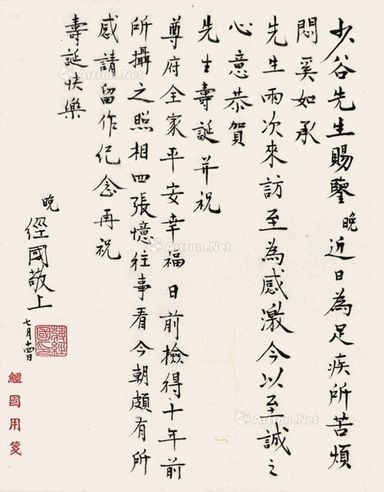 少谷先生賜鑒晚近日為足疾所苦煩
悶奚如承
先生兩次來訪至為感激今以至誠之
心意恭賀
先生壽誕并祝
尊府全家平安幸福日前檢得十年前
所攝之照相四張憶往事看今朝頗有所
感請留作紀念再祝
壽誕快樂
晚
經國敬上
七月十四日
蔣經國印
經國用箋
Artron.Net
Artron.Net
Artron.Net
Artron.Net